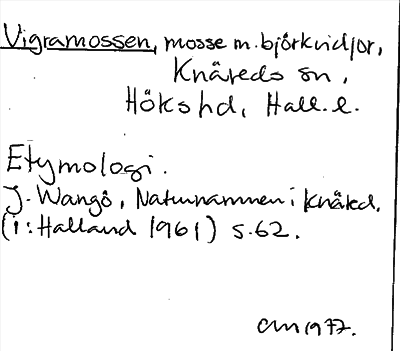 Vigramossen, mosse m. björkvidjor,
Knäreds sn,
Höks hd, Hall. l.
Etymologi.
J. Wangö, Naturnamnen i Knäred.
(i: Halland 1961) s. 62.
1977.